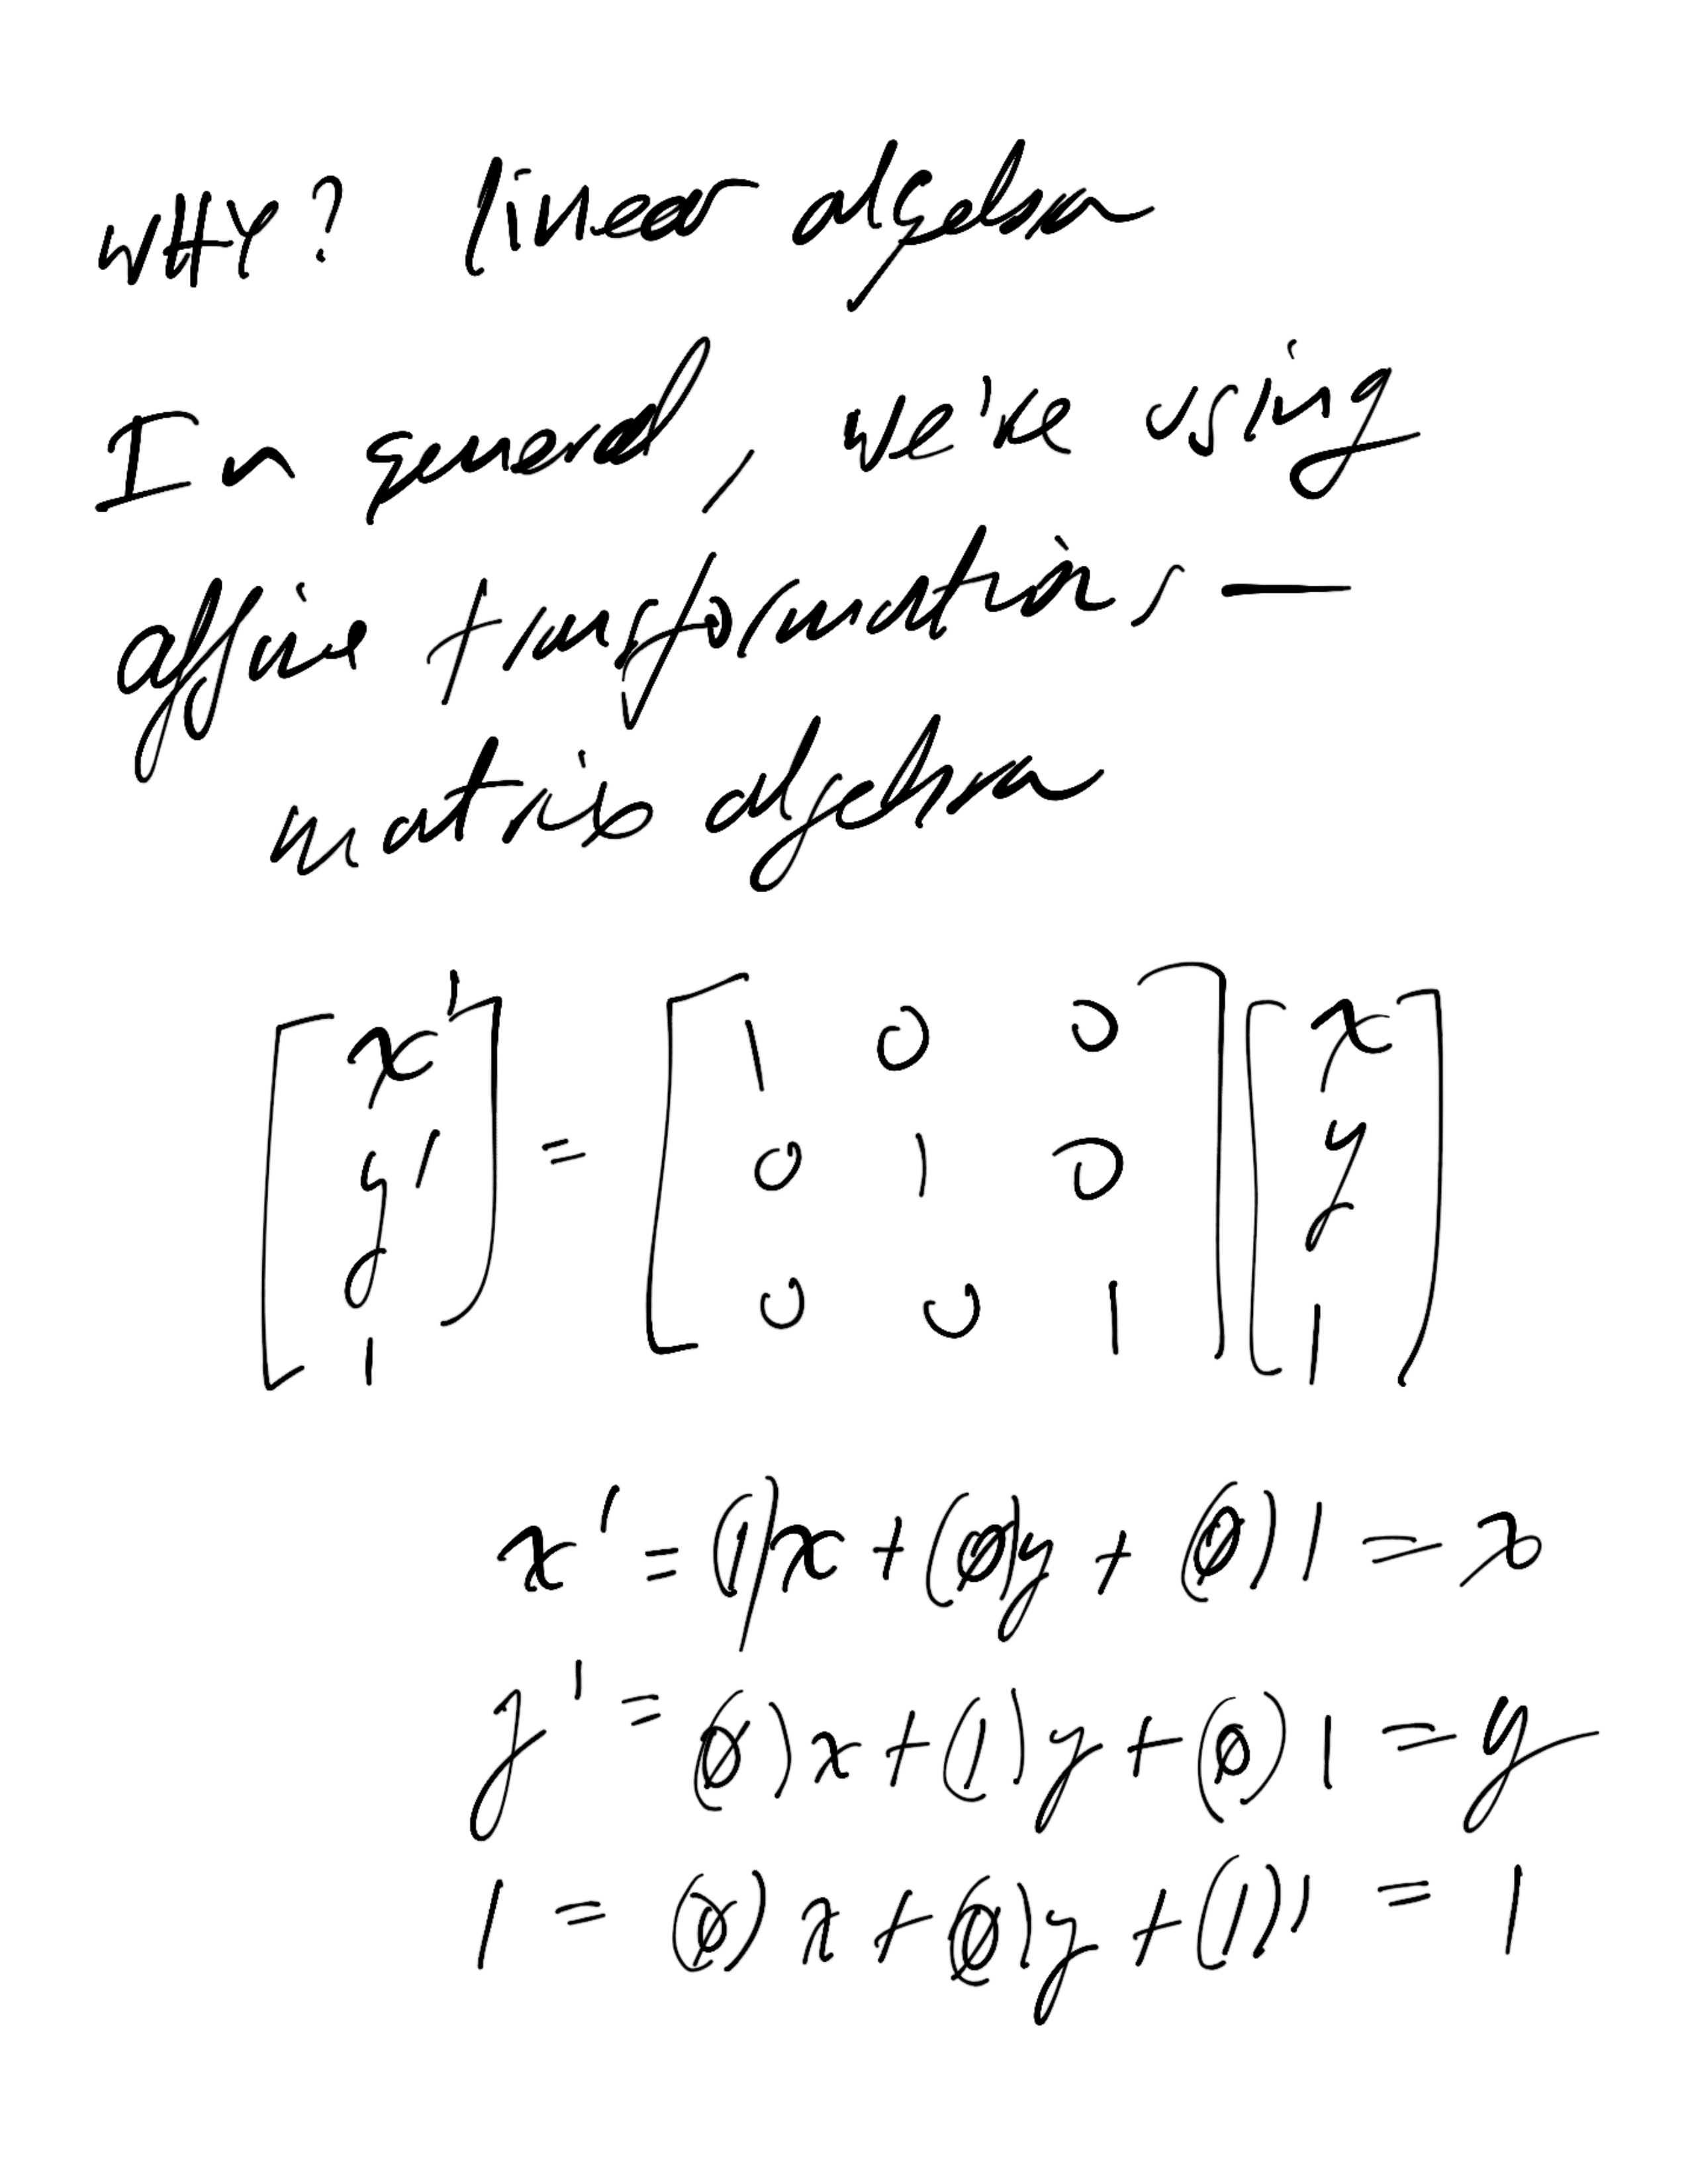 WHY? linear algebra
In general, we're using
affine transformations —
matrix algebra
[x' y' 1] = [1 0 0; 0 1 0; 0 0 1] [x y 1]
x' = (1)x + (0)y + (0)1 = x
y' = (0)x + (1)y + (0)1 = y
1 = (0)x + (0)y + (1)1 = 1